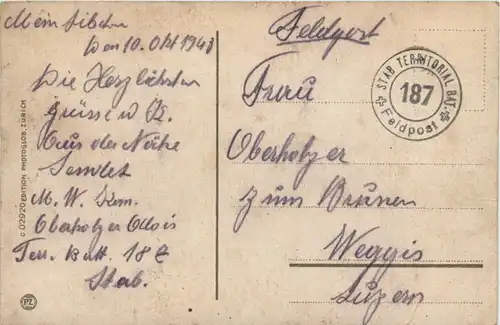 Mein liben
Den 10. Okt 194
Die Herzlichsten
Grüsse u K.
Aus der Nähe
Sendet
M. W. Kom.
Oberholzer Alois
Terr. Batt. 187
Stab.
C 02920 EDITION PHOTOGLOB, ZÜRICH
PZ
Feldpost
STAB TERRITORIAL BAT.
187
Feldpost
Frau
Oberholzer
zum Brunen
Weggis
Luzern